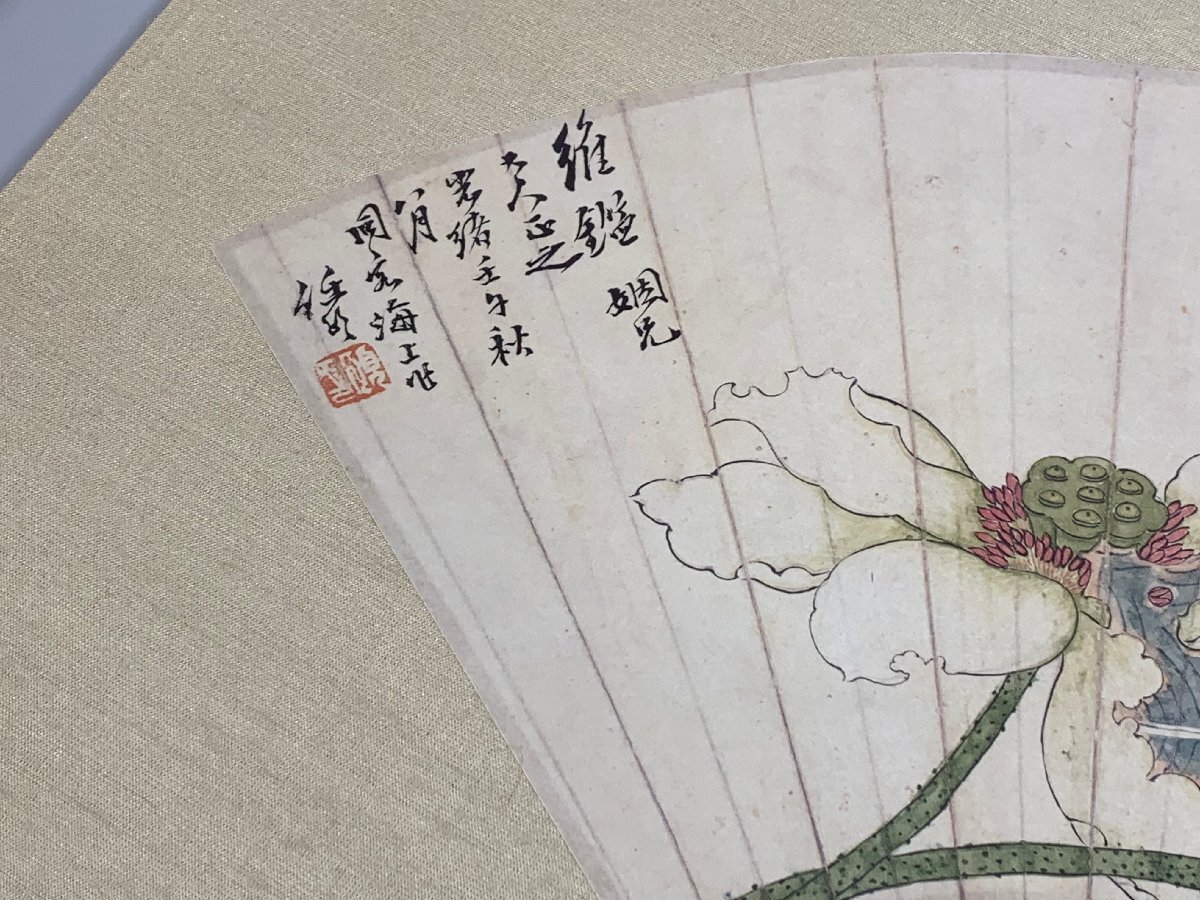 維鑑姻兄
大人正之
光緒壬午秋
八月
同客海上作
任頤